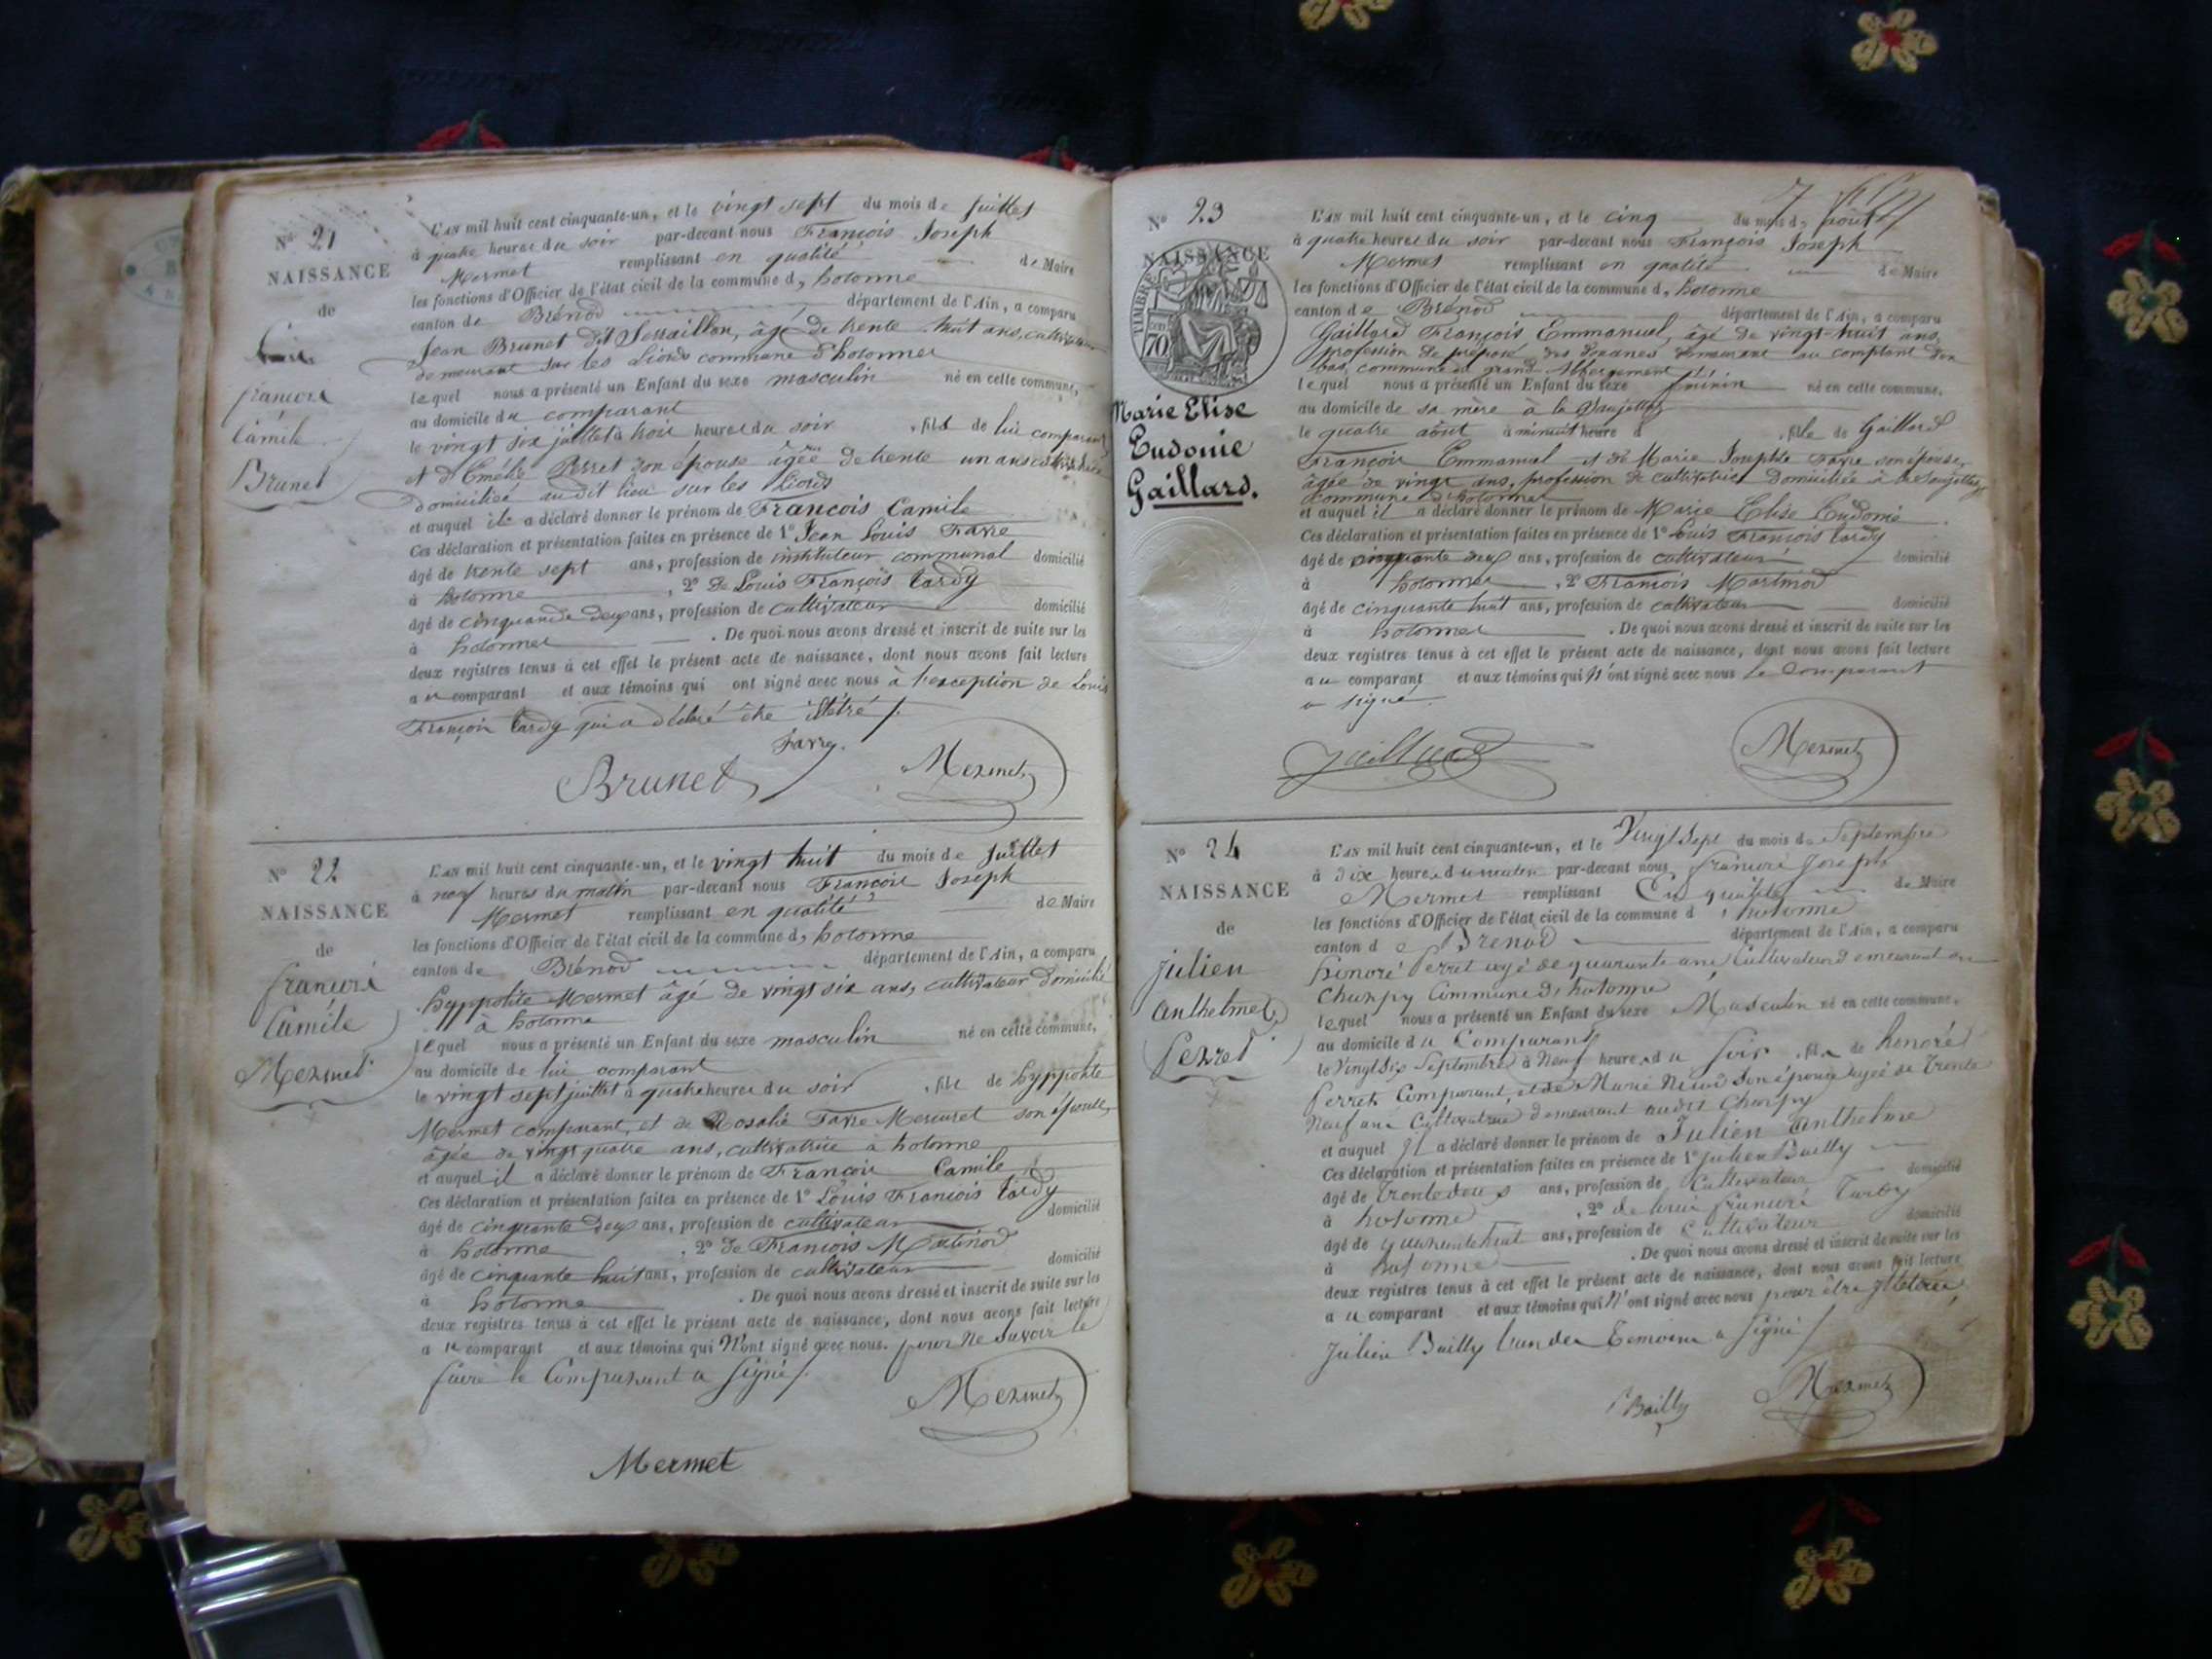 N° 21
NAISSANCE
de
françois
Camile
Brunet
L'AN mil huit cent cinquante-un, et le vingt sept du mois de Juillet
à quatre heures du soir par-devant nous François Joseph
Mermet remplissant en qualité de Maire
les fonctions d'Officier de l'état civil de la commune d, hotonne
canton de Brénod département de l'Ain, a comparu
Jean Brunet dit Serraillon, âgé de trente huit ans, cultivateur
demeurant sur les Liords commune d'hotonnes
lequel nous a présenté un Enfant du sexe masculin né en cette commune,
au domicile du comparant
le vingt six juillet à trois heures du soir, fils de lui comparant
et d'Emélie Perret son épouse âgée de trente un ans cultivatrice
domiciliée audit lieu sur les Liords
et auquel il a déclaré donner le prénom de François Camile
Ces déclaration et présentation faites en présence de 1° Jean Louis Favre
âgé de trente sept ans, profession de instituteur communal domicilié
à hotonne, 2° de Louis François tardy
âgé de cinquande deux ans, profession de cultivateur domicilié
à hotonnes. De quoi nous avons dressé et inscrit de suite sur les
deux registres tenus à cet effet le présent acte de naissance, dont nous avons fait lecture
au comparant et aux témoins qui ont signé avec nous à l'exception de Louis
François tardy qui a déclaré être illétré
Favre.
Brunet
Mermet
N° 22
NAISSANCE
de
françois
Camile
Mermet
L'AN mil huit cent cinquante-un, et le vingt huit du mois de Juillet
à neuf heures du matin par-devant nous François Joseph
Mermet remplissant en qualité de Maire
les fonctions d'Officier de l'état civil de la commune d, hotonne
canton de Brénod département de l'Ain, a comparu
hyppolite Mermet âgé de vingt six ans, cultivateur domicilié
à hotonne
lequel nous a présenté un Enfant du sexe masculin né en cette commune,
au domicile de lui comparant
le vingt sept juillet à quatre heures du soir, fils de hyppolite
Mermet comparant, et de Rosalie Favre Mercuret son épouse,
âgée de vingt quatre ans, cultivatrice à hotonne
et auquel il a déclaré donner le prénom de François Camile
Ces déclaration et présentation faites en présence de 1° Louis François tardy
âgé de cinquante deux ans, profession de cultivateur domicilié
à hotonne, 2° de François Martinod
âgé de cinquante huit ans, profession de cultivateur domicilié
à hotonne. De quoi nous avons dressé et inscrit de suite sur les
deux registres tenus à cet effet le présent acte de naissance, dont nous avons fait lecture
au comparant et aux témoins qui N'ont signé avec nous. pour ne savoir le
faire le Comparant a signé
Mermet
Mermet
N° 23
NAISSANCE
TIMBRE
70
Marie Elise
Eudonie
Gaillard.
L'AN mil huit cent cinquante-un, et le cinq du mois d, août
à quatre heures du soir par-devant nous François Joseph
Mermet remplissant en qualité de Maire
les fonctions d'Officier de l'état civil de la commune d, hotonne
canton de Brénod département de l'Ain, a comparu
Gaillard François Emmanuel, âgé de vingt-huit ans,
profession de préposé des douanes demeurant au comptant d'en
bas, commune du grand Abbergement
lequel nous a présenté un Enfant du sexe féminin né en cette commune,
au domicile de sa mère à la
le quatre août à minuit heure d, fille de Gaillard
François Emmanuel et de Marie Josephte Favre son épouse,
âgée de vingt ans, profession de cultivatrice domiciliée à
commune d'hotonnes
et auquel il a déclaré donner le prénom de Marie Elise Eudonie
Ces déclaration et présentation faites en présence de 1° Louis François tardy
âgé de cinquante deux ans, profession de cultivateur domicilié
à hotonnes, 2° François Martinod
âgé de cinquante huit ans, profession de cultivateur domicilié
à hotonnes. De quoi nous avons dressé et inscrit de suite sur les
deux registres tenus à cet effet le présent acte de naissance, dont nous avons fait lecture
au comparant et aux témoins qui N'ont signé avec nous Le Comparant
a signé
Gaillard
Mermet
N° 24
NAISSANCE
de
Julien
anthelme
Perret
L'AN mil huit cent cinquante-un, et le Vingt Sept du mois de Septembre
à dix heures du matin par-devant nous françois Joseph
Mermet remplissant En qualité de Maire
les fonctions d'Officier de l'état civil de la commune d, hotonne
canton de Brenod département de l'Ain, a comparu
honoré Perret agé de quarante ans Cultivateur demeurant en
Charpy Commune d, hotonne
lequel nous a présenté un Enfant du sexe Masculin né en cette commune,
au domicile du Comparant
le Vingt Six Septembre à Neuf heures du soir, fils de honoré
Perret Comparant, et de Marie Nivod Son épouse agée de Trente
Neuf ans Cultivatrice demeurant audit Charpy
et auquel Il a déclaré donner le prénom de Julien anthelme
Ces déclaration et présentation faites en présence de 1° Julien Bailly
âgé de trente deux ans, profession de Cultivateur domicilié
à hotonne, 2° de Louis françois Tardy
âgé de quarante huit ans, profession de Cultivateur domicilié
à hotonne. De quoi nous avons dressé et inscrit de suite sur les
deux registres tenus à cet effet le présent acte de naissance, dont nous avons fait lecture
au comparant et aux témoins qui N'ont signé avec nous pour être
Julien Bailly l'un des Temoins a Signé
Bailly
Mermet